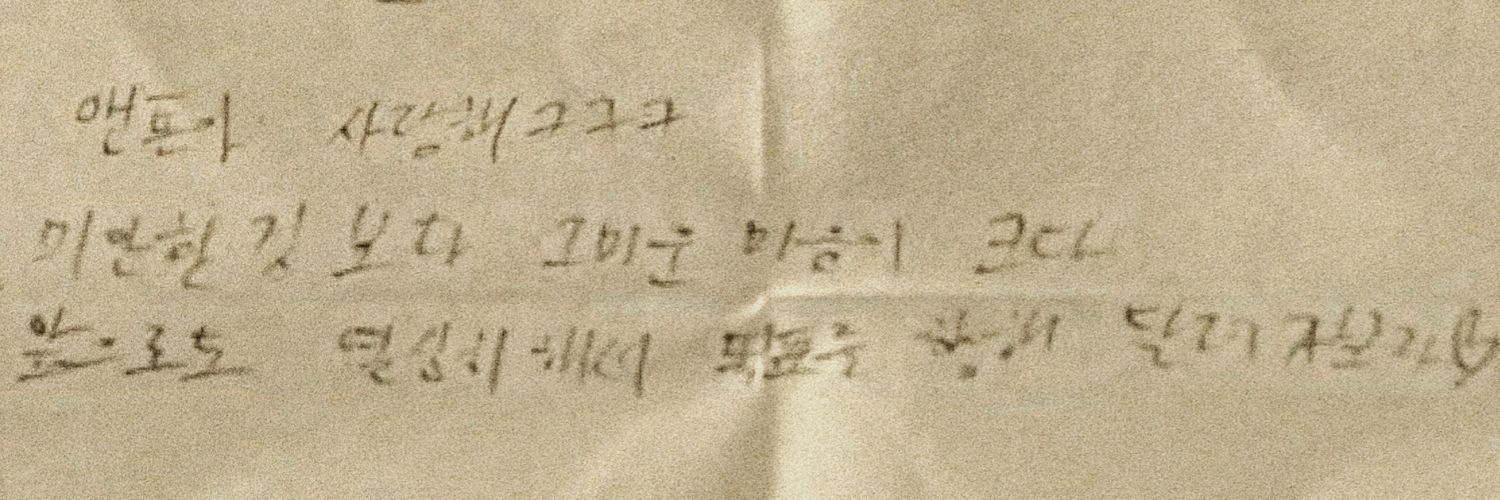 앤프야 사랑해 ㅋㅋㅋ
미안한 것 보다 고마운 마음이 크다
앞으로도 열심히 해서 목표를 향해 달려가보자